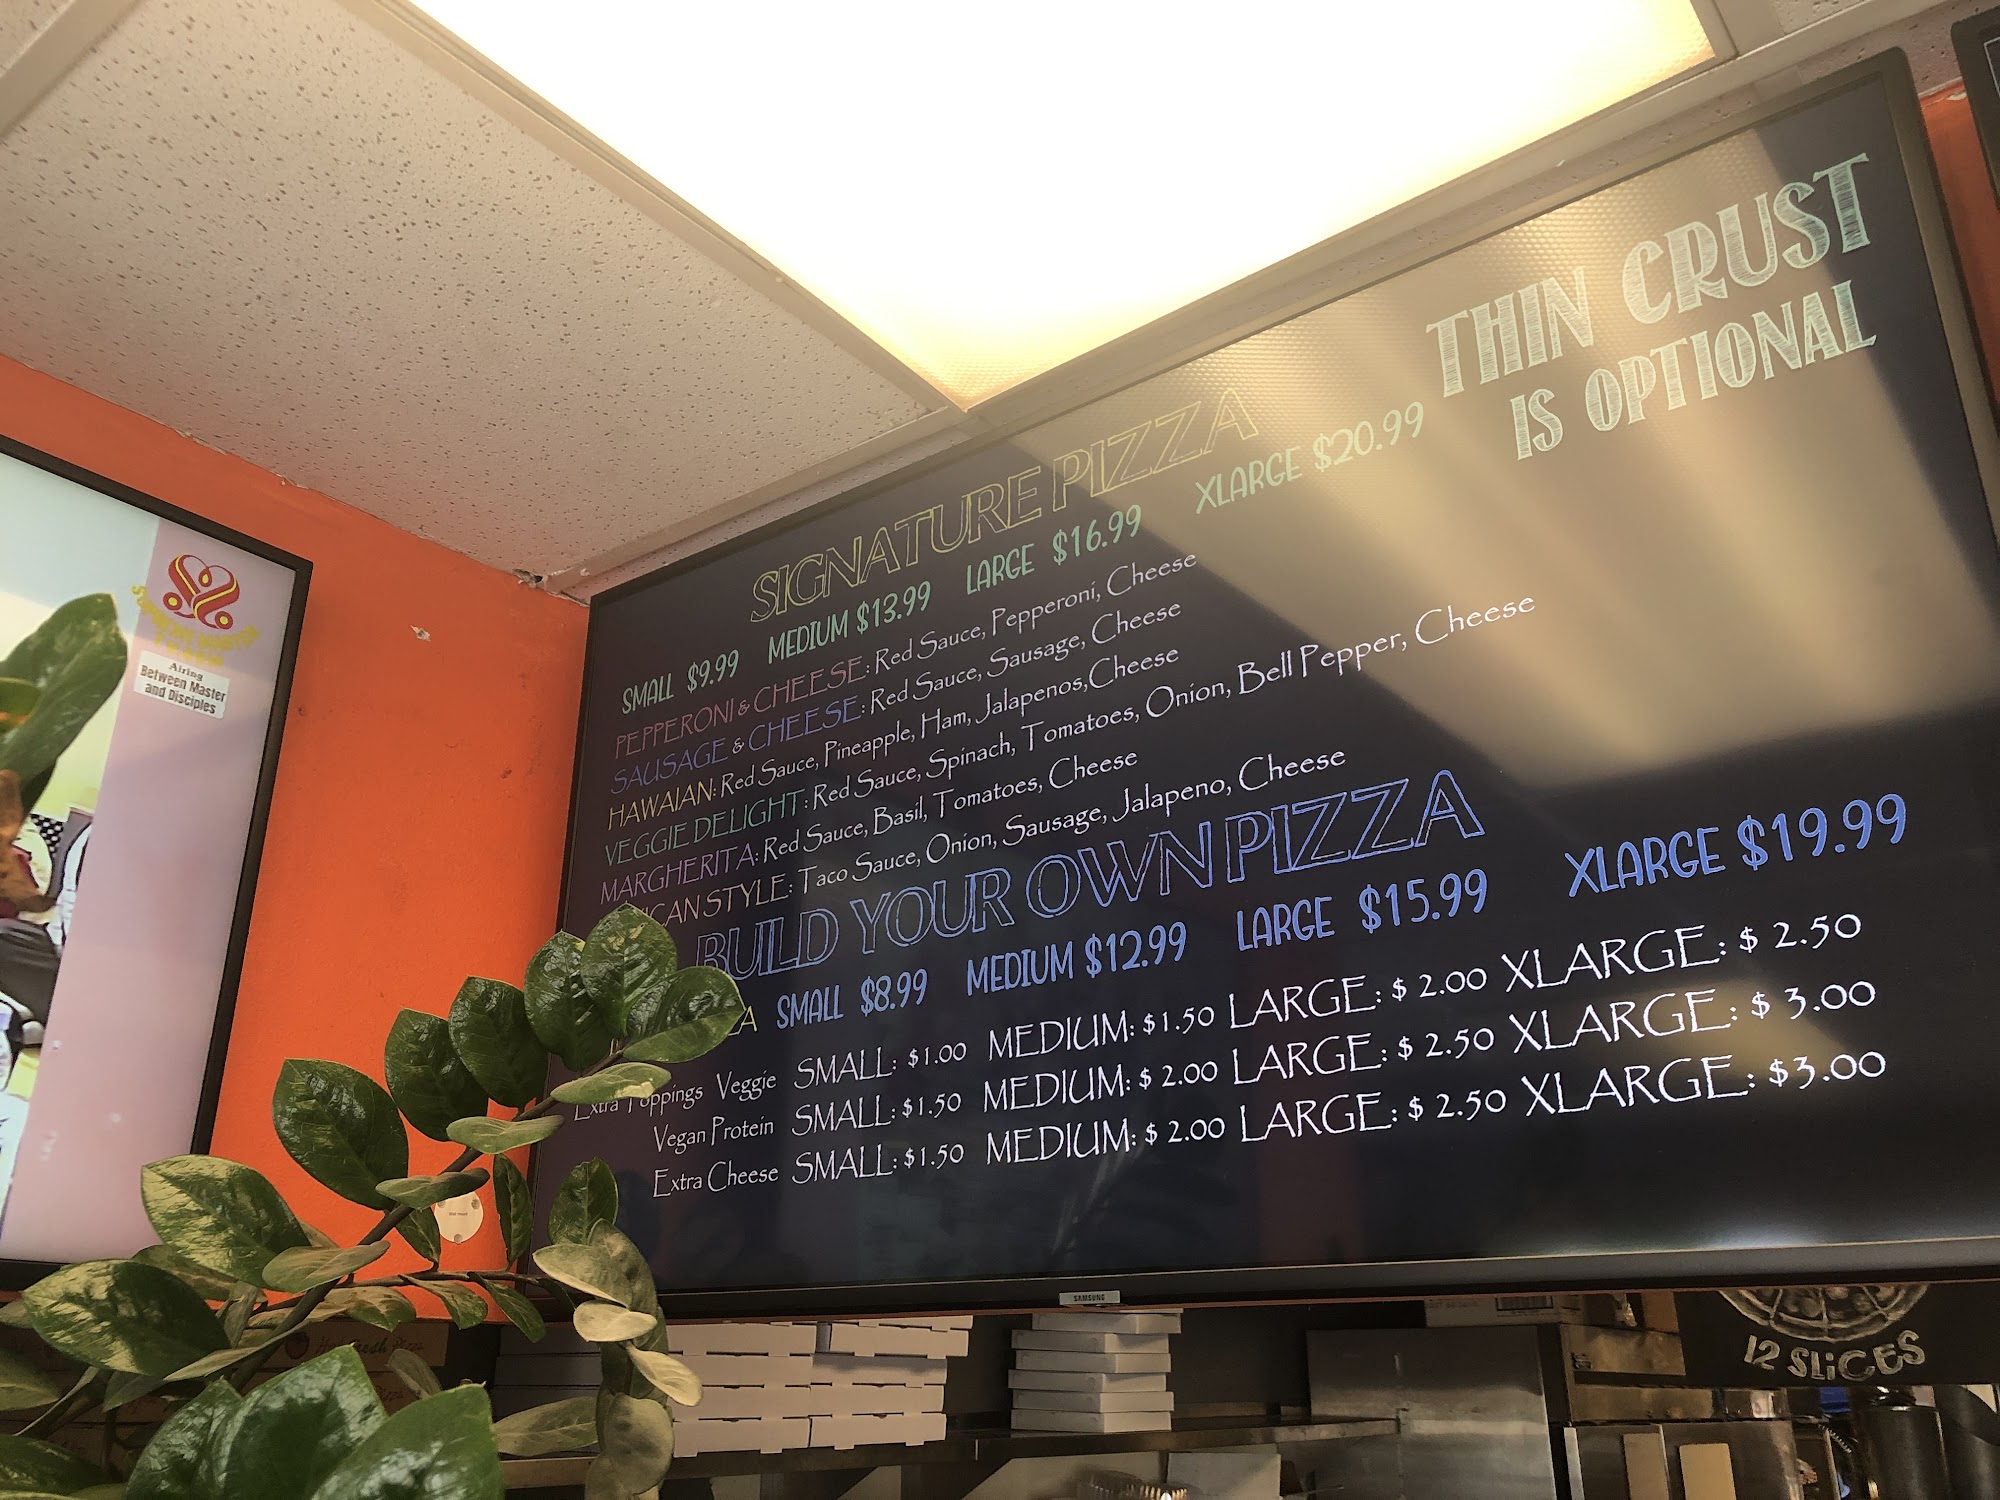 THIN CRUST
IS OPTIONAL
SIGNATURE PIZZA
SMALL $9.99 MEDIUM $13.99 LARGE $16.99 XLARGE $20.99
PEPPERONI & CHEESE: Red Sauce, Pepperoni, Cheese
SAUSAGE & CHEESE: Red Sauce, Sausage, Cheese
HAWAIAN: Red Sauce, Pineapple, Ham, Jalapenos,Cheese
VEGGIE DELIGHT: Red Sauce, Spinach, Tomatoes, Onion, Bell Pepper, Cheese
MARGHERITA: Red Sauce, Basil, Tomatoes, Cheese
STYLE: Taco Sauce, Onion, Sausage, Jalapeno, Cheese
BUILD YOUR OWN PIZZA
SMALL $8.99 MEDIUM $12.99 LARGE $15.99 XLARGE $19.99
Extra Toppings Veggie SMALL: $1.00 MEDIUM: $1.50 LARGE: $ 2.00 XLARGE: $ 2.50
Vegan Protein SMALL: $1.50 MEDIUM: $ 2.00 LARGE: $ 2.50 XLARGE: $ 3.00
Extra Cheese SMALL: $1.50 MEDIUM: $ 2.00 LARGE: $ 2.50 XLARGE: $3.00
SAMSUNG
Airing
Between Master
and Disciples
12 SLiCES